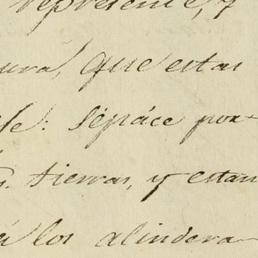 represente, y
que estas
se: sépace por-
s. tierras, y estan
á los alindera-